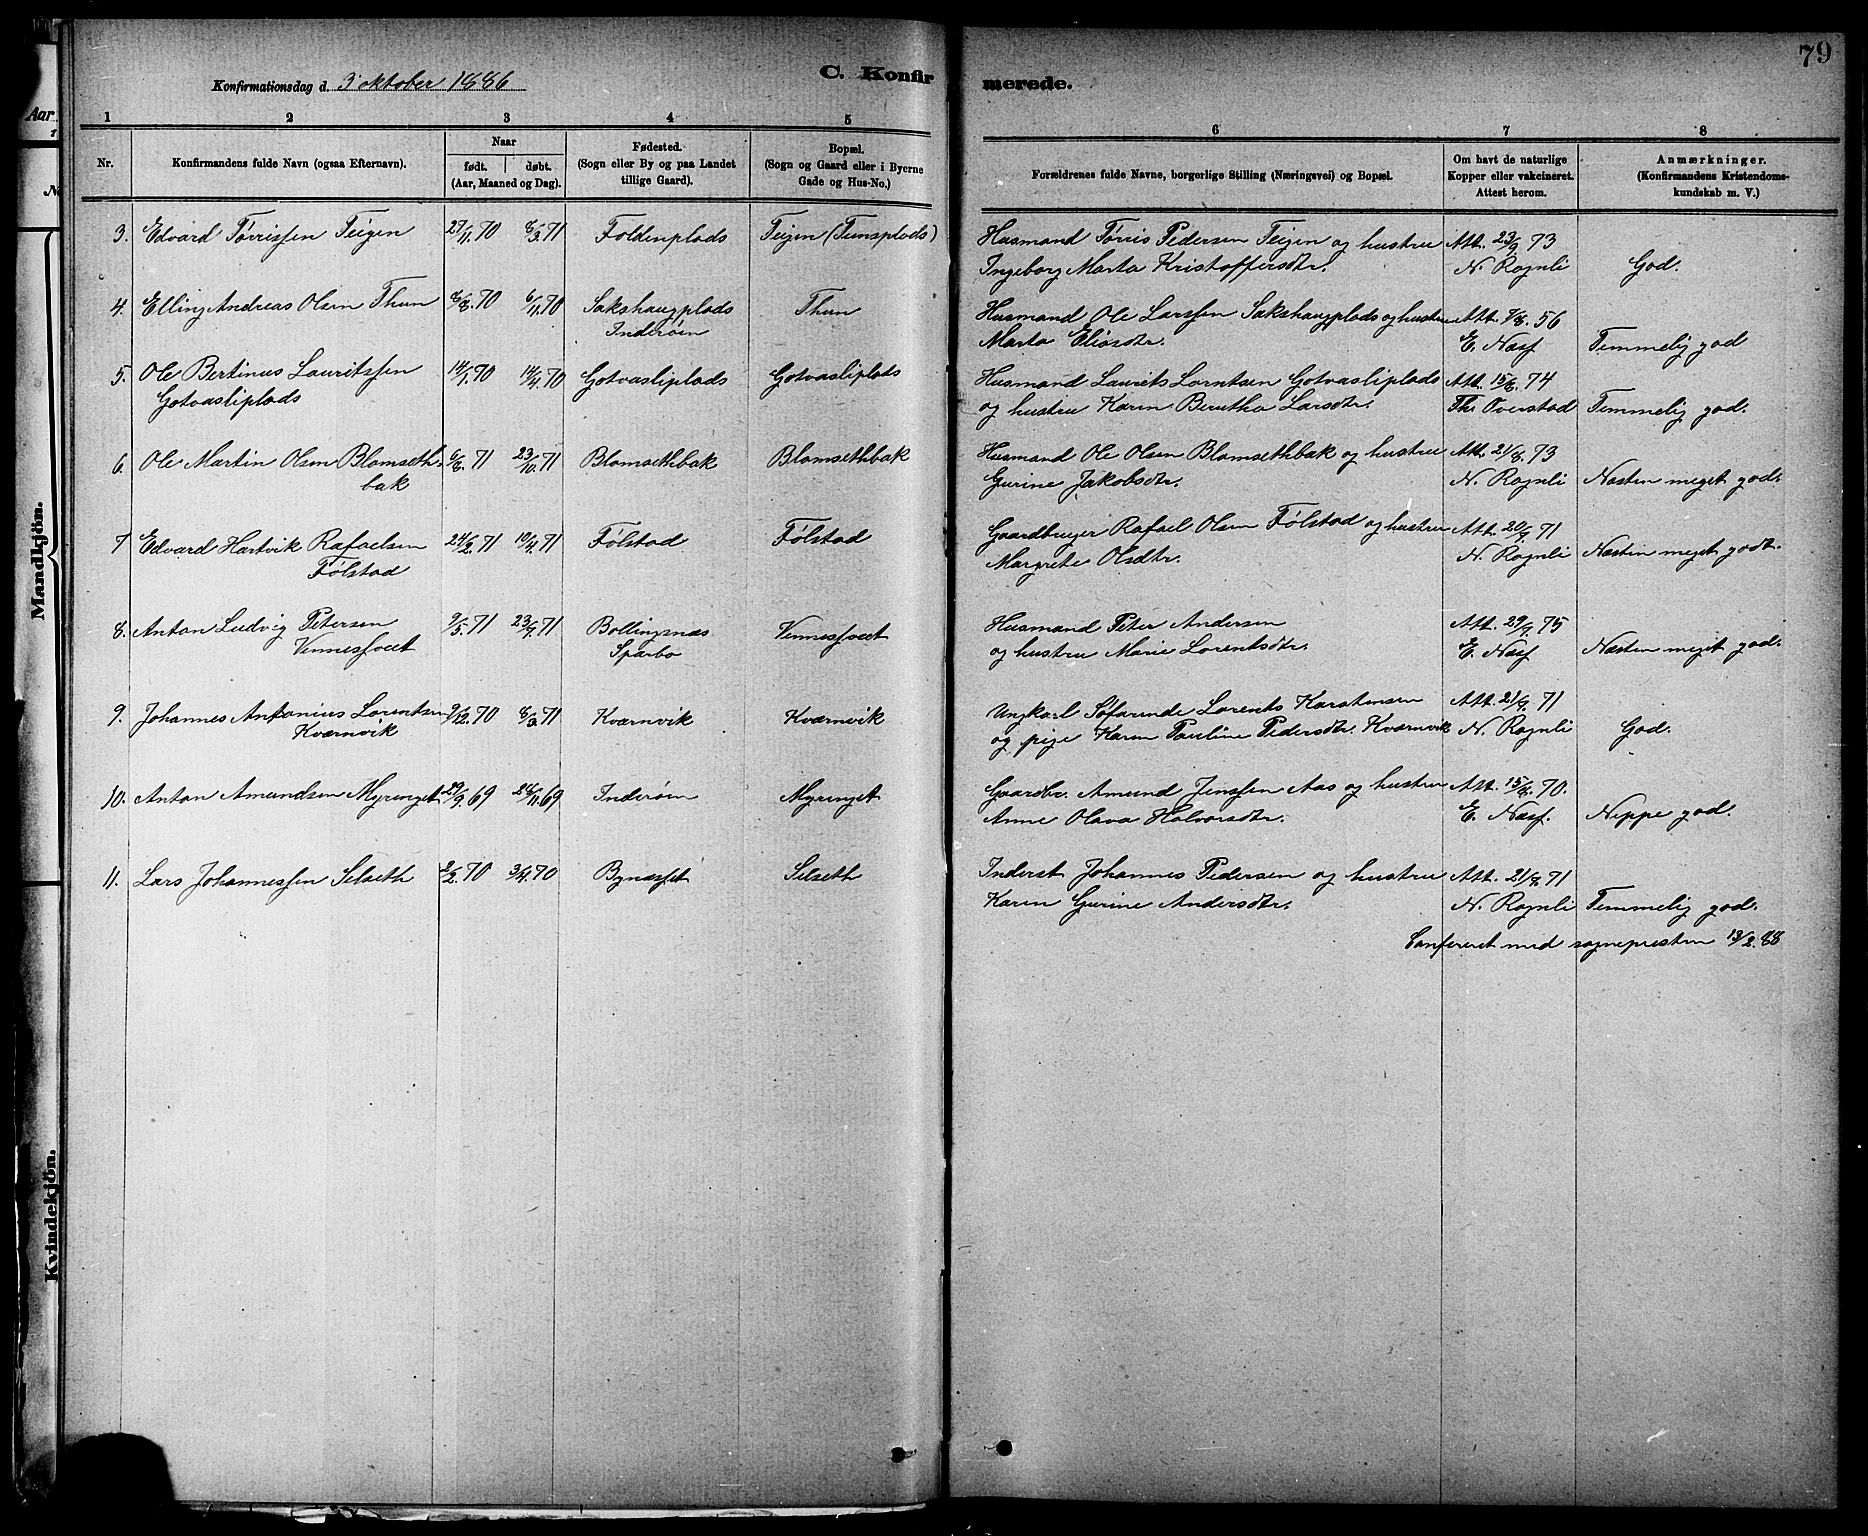 79
Konfirmationsdag d. 3' oktober 1886
C. Konfirmerede.
Aar.
1 2 3 4 5 6 7 8
Nr.
Konfirmandens fulde Navn (ogsaa Efternavn).
Naar
født. døbt.
(Aar, Maaned og Dag).
Fødested.
(Sogn eller By og paa Landet
tillige Gaard).
Bopæl.
(Sogn og Gaard eller i Byerne
Gade og Hus-No.)
Forældrenes fulde Navne, borgerlige Stilling (Næringsvei) og Bopæl.
Om havt de naturlige
Kopper eller vakcineret.
Attest herom.
Anmærkninger.
(Konfirmandens Kristendoms-
kundskab m. V.)
Mandkjön.
3. Edvard Tørrissen Teigen 27/11.70 8/3.71 Foldenplads Teigen (Tunsplads) Husmand Tørris Pedersen Teigen og hustru Att. 23/9 73
Ingeborg Marta Kristoffersdtr. N. Rognli God.
4. Elling Andreas Olsen Thun 8/8.70 6/11.70 Sakshaugplads Thun Husmand Ole Larssen Sakshaugplads og hustru Att. 56
Inderøen Marta Eliasdtr. E. Næss Temmelig god
5. Ole Bertinus Lauritssen 14/1.70 14/4.70 Gotvasliplads Gotvasliplads Husmand Laurits Lorntsen Gotvasliplads Att. 15/8. 74
Gotvasliplads og hustru Karen Berntha Larsdtr. Th. Overstad Temmelig god.
6. Ole Martin Olsen Blomseth- 6/8.71 23/10.71 Blomsethbak Blomsethbak Husmand Ole Olsen Blomsethbak og hustru Att. 21/8. 73
bak Gurine Jakobsdtr. N. Rognli Næsten meget god.
7 Edvard Hartvik Rafaelsen 24/2.71 10/4.71 Følstad Følstad Gaardbruger Rafael Olsen Følstad og hustru Att. 20/9. 71
Følstad Margrete Olsdtr. N. Rognli Næsten meget godt.
8. Anton Ludvig Petersen 9/5.71 23/9.71 Bollingsnæs Vennesfvet Husmand Peter Andersen Att. 29/9. 75
Vennesfvet Sparbo og hustru Marie Lorentsdtr. E. Næss Næsten meget god.
9. Johannes Antonius Lorentsen 9/12.70 8/3.71 Kværnvik Kværnvik Ungkarl Søfarende Lorents Karstensen Att. 21/9. 71
Kværnvik og pige Karen Pauline Pedersdtr. Kværnvik N. Rognli God.
10. Anton Amundsen Myrenget 29/9.69 28/11.69 Inderøen Myrenget Gaardbr. Amund Jenssen Aas og hustru Att. 15/8. 70.
Anne Olava Halvorsdtr. E. Næss. Neppe god.
11. Lars Johannessen Selseth 2/2.70 3/4.70 Bynæsset Selseth Inderst Johannes Pedersen og hustru Att. 21/9. 71
Karen Gurine Andersdtr. N. Rognli Temmelig god.
Confereret med sognepresten 13/2.88
Kvindekjön.